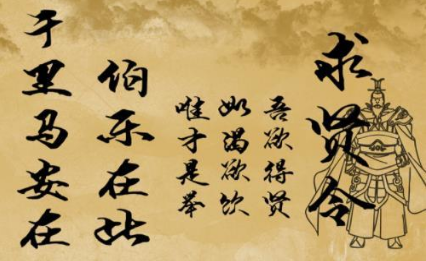 求贤令
吾欲得贤
如渴欲饮
唯才是举
伯乐在此
千里马安在